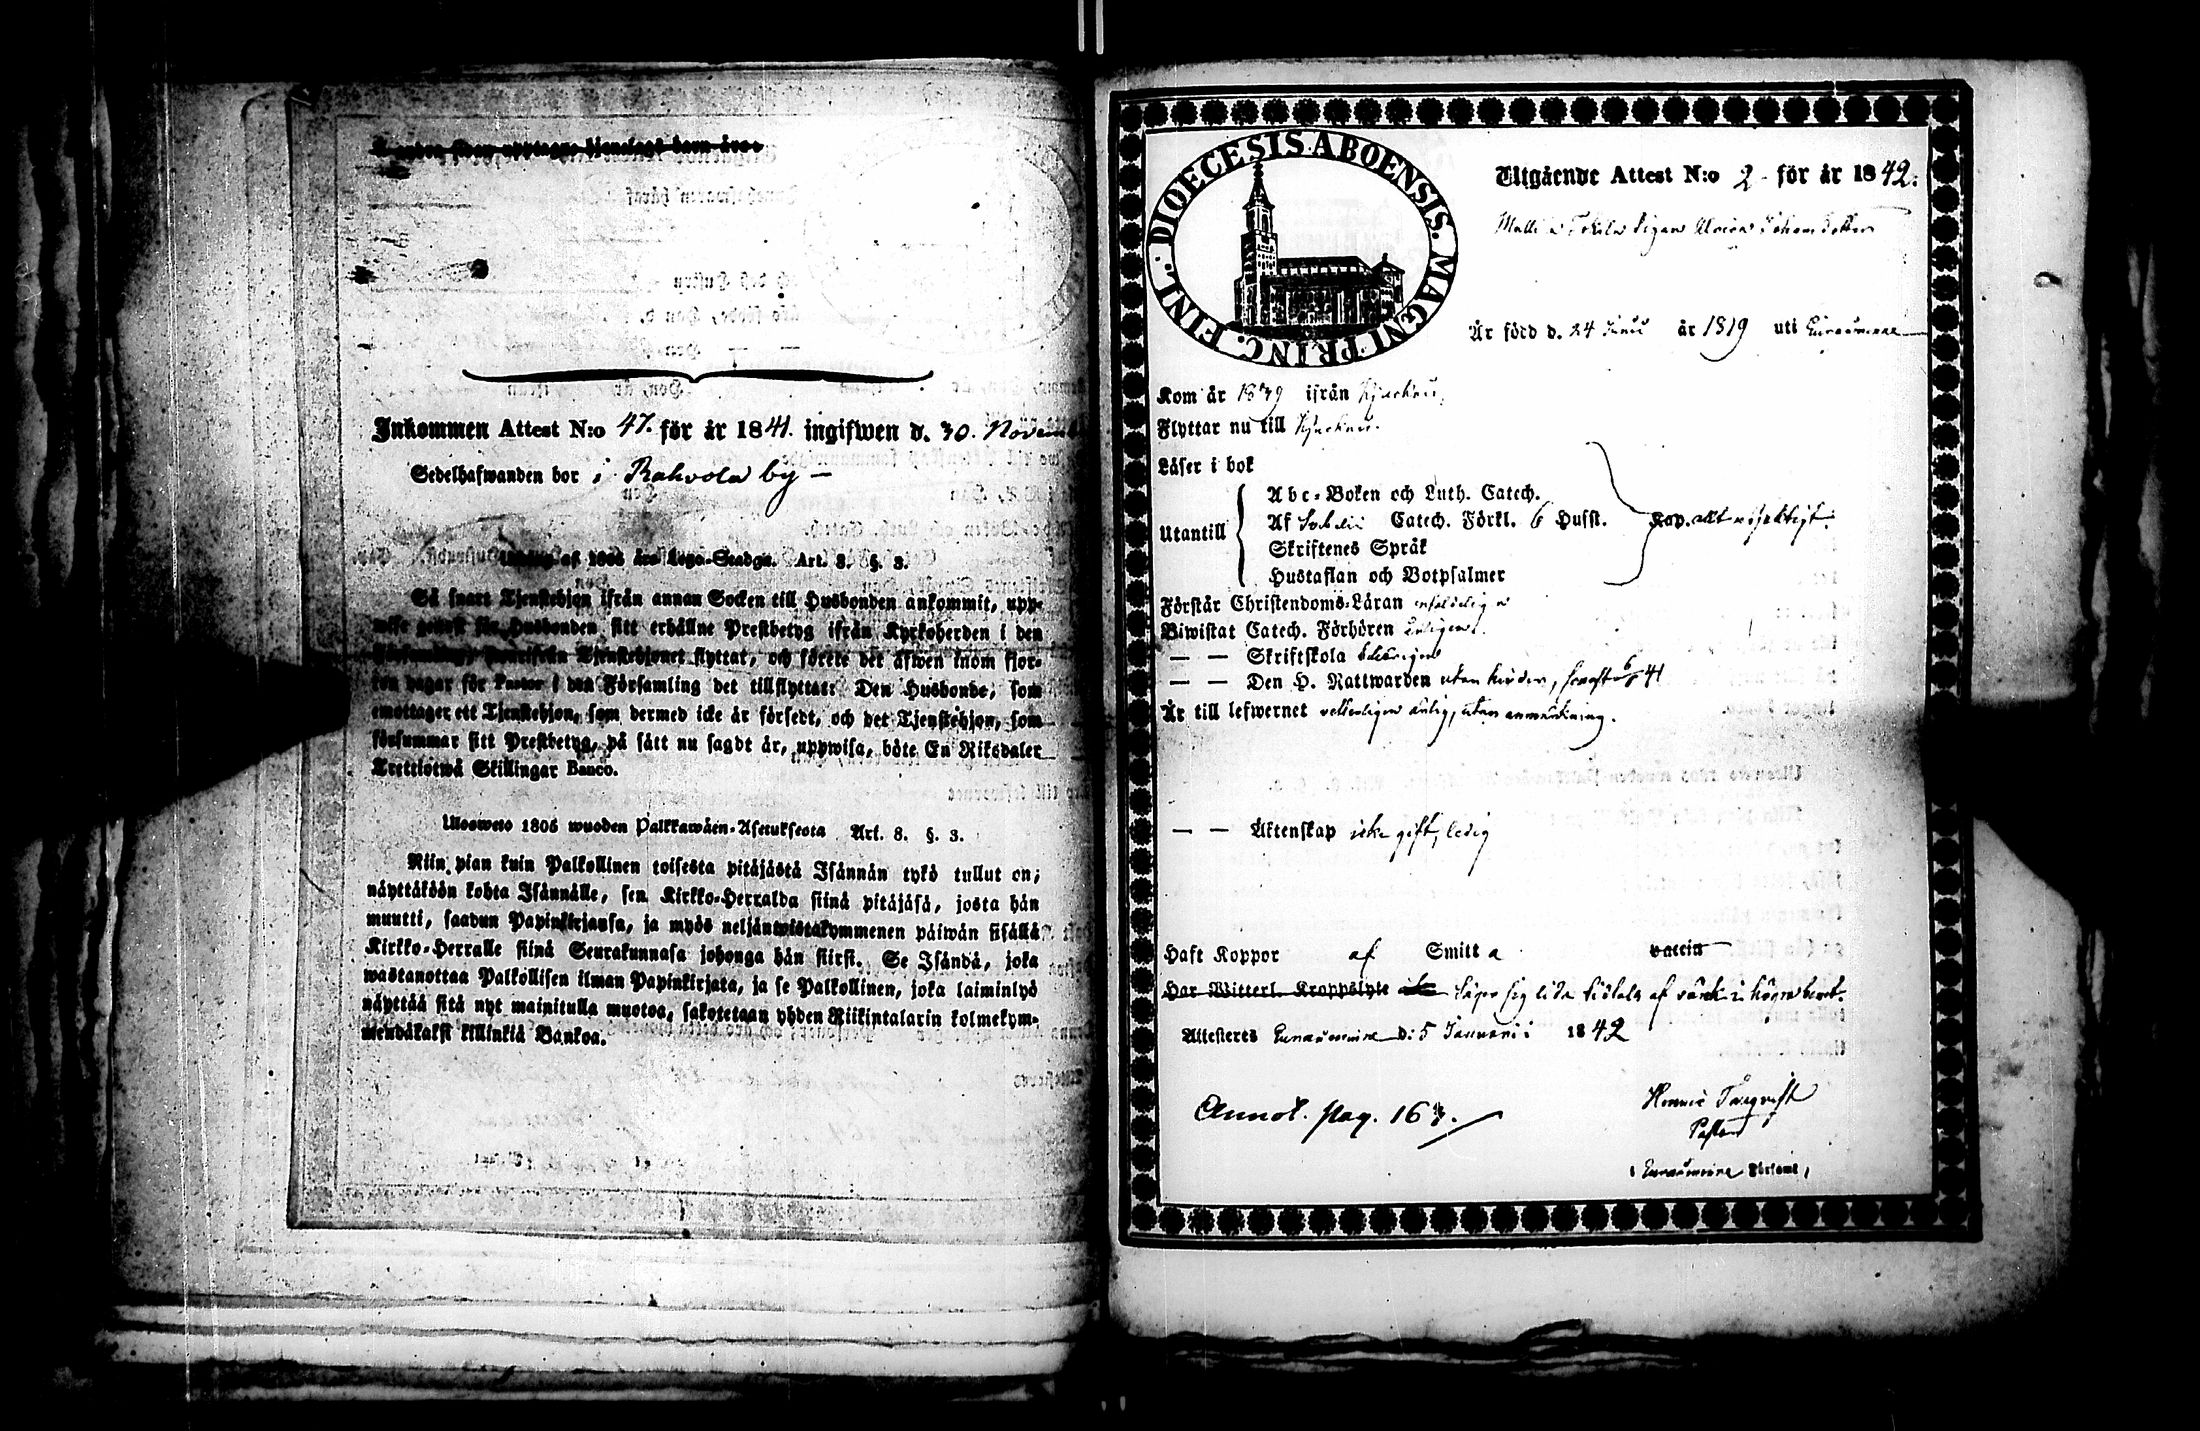 Inkommen Attest N:o 47. för år 1841. ingifwen d. 30. Novemb
Sedelhafwanden bor i Rahvola by –
af 1805 års Lego-Stadga. Art. 8. §. 3.
Så snart Tjenstehjon ifrån annan Socken till Husbonden ankommit, upp-
wise genast för Husbonden sitt erhållne Prestbetyg ifrån Kyrkoherden i den
Tjenstehjonet flyttat, och förete det äfwen inom fjor-
ton dagar för Pastor i den Församling det tillflyttat: Den Husbonde, som
emottager ett Tjenstehjon, som dermed icke är försedt, och det Tjenstehjon, som
försummar sitt Prestbetyg, på sätt nu sagdt är, uppwisa, böte En Riksdaler
Trettiotwå Skillingar Banco.
Ulosweto 1805 wuoden Palkkawäen-Asetuksesta Art. 8. §. 3.
Niin pian kuin Palkollinen toisesta pitäjästä Isännän tykö tullut on;
näyttäköön kohta Isännälle, sen Kirkko-Herralda siinä pitäjäsä, josta hän
muutti, saadun Papinkirjansa, ja myös neljäntoistakymmenen päiwän sisällä
Kirkko-Herralle siinä Seurakunnasa johonga hän siirsi. Se Isändä, joka
wastanottaa Palkollisen ilman Papinkirjata, ja se Palkollinen, joka laiminlyö
näyttää sitä nyt mainitulla muotoa, sakotetaan yhden Riikintalarin kolmekym-
mendäkaksi killinkiä Bankoa.
DIOECESIS ABOENSIS. MAGNI PRINC. FINL.
Utgående Attest N:o 2 för år 1842.
Tokila Pigan Maria Johans dotter
Är född d. 24 Junii år 1819 uti Euraåminne
Kom år 1839 ifrån Kjuckais,
Flyttar nu till Kjuckais.
Läser i bok
Utantill
Abc-Boken och Luth. Catech.
Af Svebelii Catech. Förkl. 6 Hufst.
Skriftenes Språk
Hustaflan och Botpsalmer
Förstår Christendoms-Läran
Biwistat Catech. Förhören
— — Skriftskola
— — Den H. Nattwarden utan hinder, senast 41
Är till lefwernet anmärkning.
— — Äktenskap icke gift, ledig
Haft Koppor af Smitta vaccin
Har Witterl. Kroppslyte Säger sig lida af värk i högra benet.
Attesteres Euraåminne d: 5 Januarii 1842
Annot. pag. 163.
Pastor
i Euraåminne Församl,